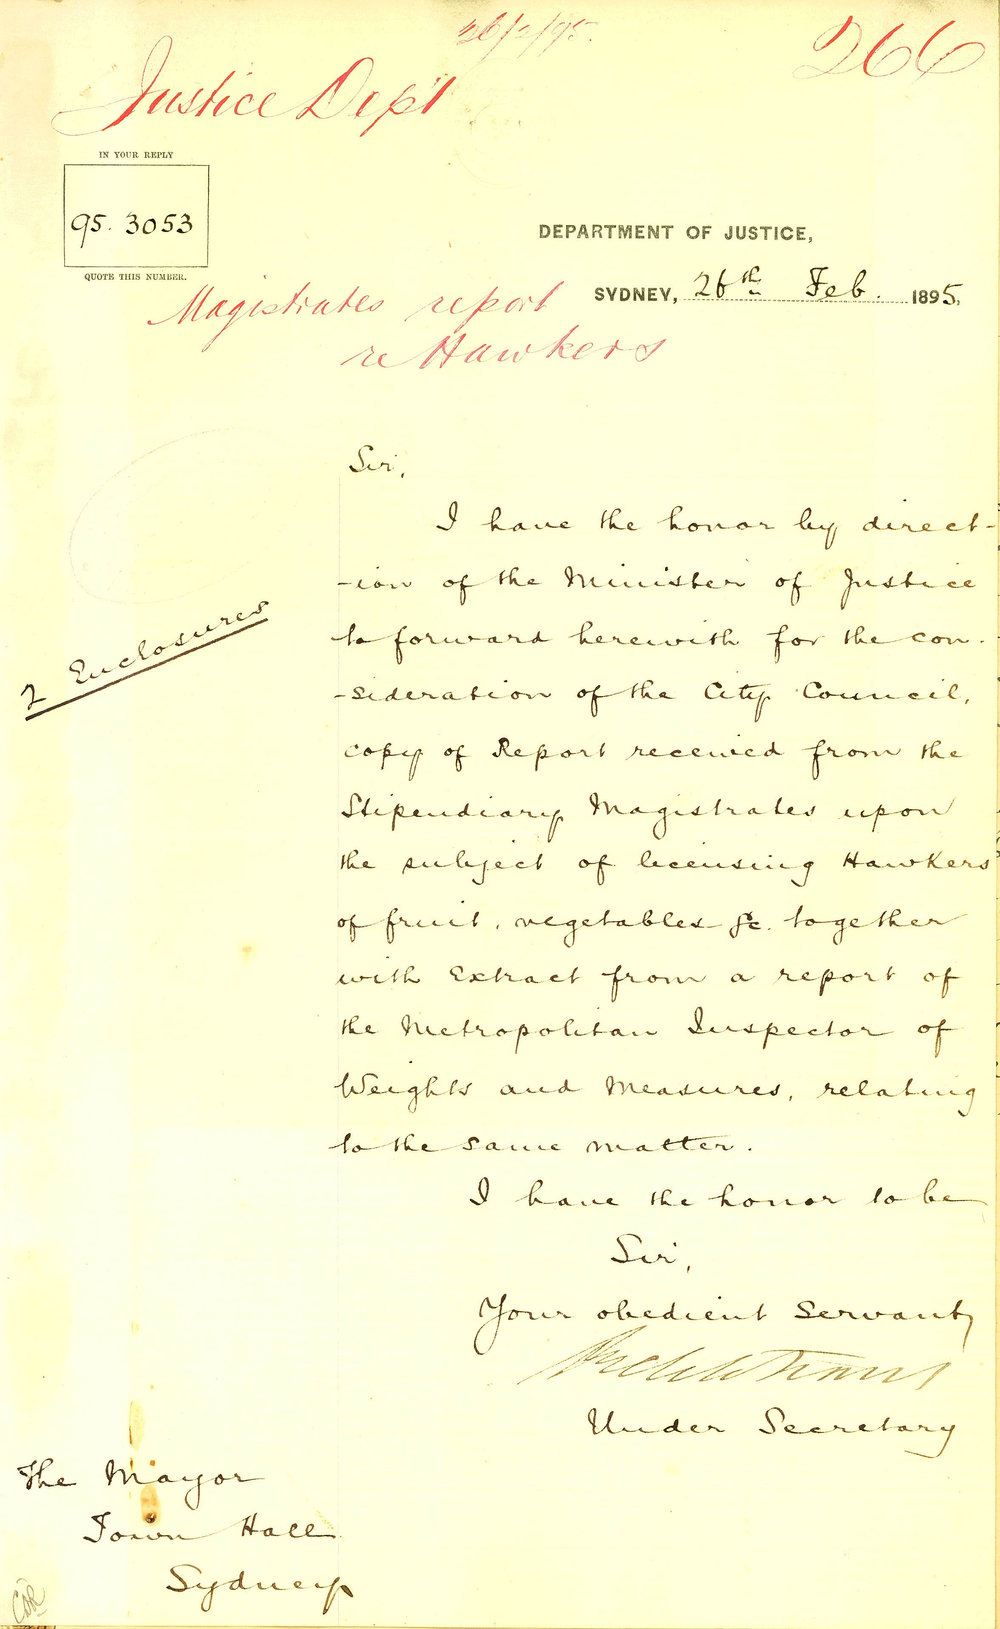 26/2/95.
266
Justice Dep't
IN YOUR REPLY
95. 3053
QUOTE THIS NUMBER.
DEPARTMENT OF JUSTICE,
SYDNEY, 26th Feb. 1895.
Magistrates report
re Hawkers
Sir,
I have the honor by direct-
-ion of the Minister of Justice
to forward herewith for the con-
-sideration of the City Council,
2 Enclosures
copy of Report received from the
Stipendiary Magistrates upon
the subject of licensing Hawkers
of fruit, vegetables &c. together
with Extract from a report of
the Metropolitan Inspector of
Weights and Measures, relating
to the same matter.
I have the honor to be
Sir,
Your obedient Servant,
Under Secretary
The Mayor
Town Hall
Sydney